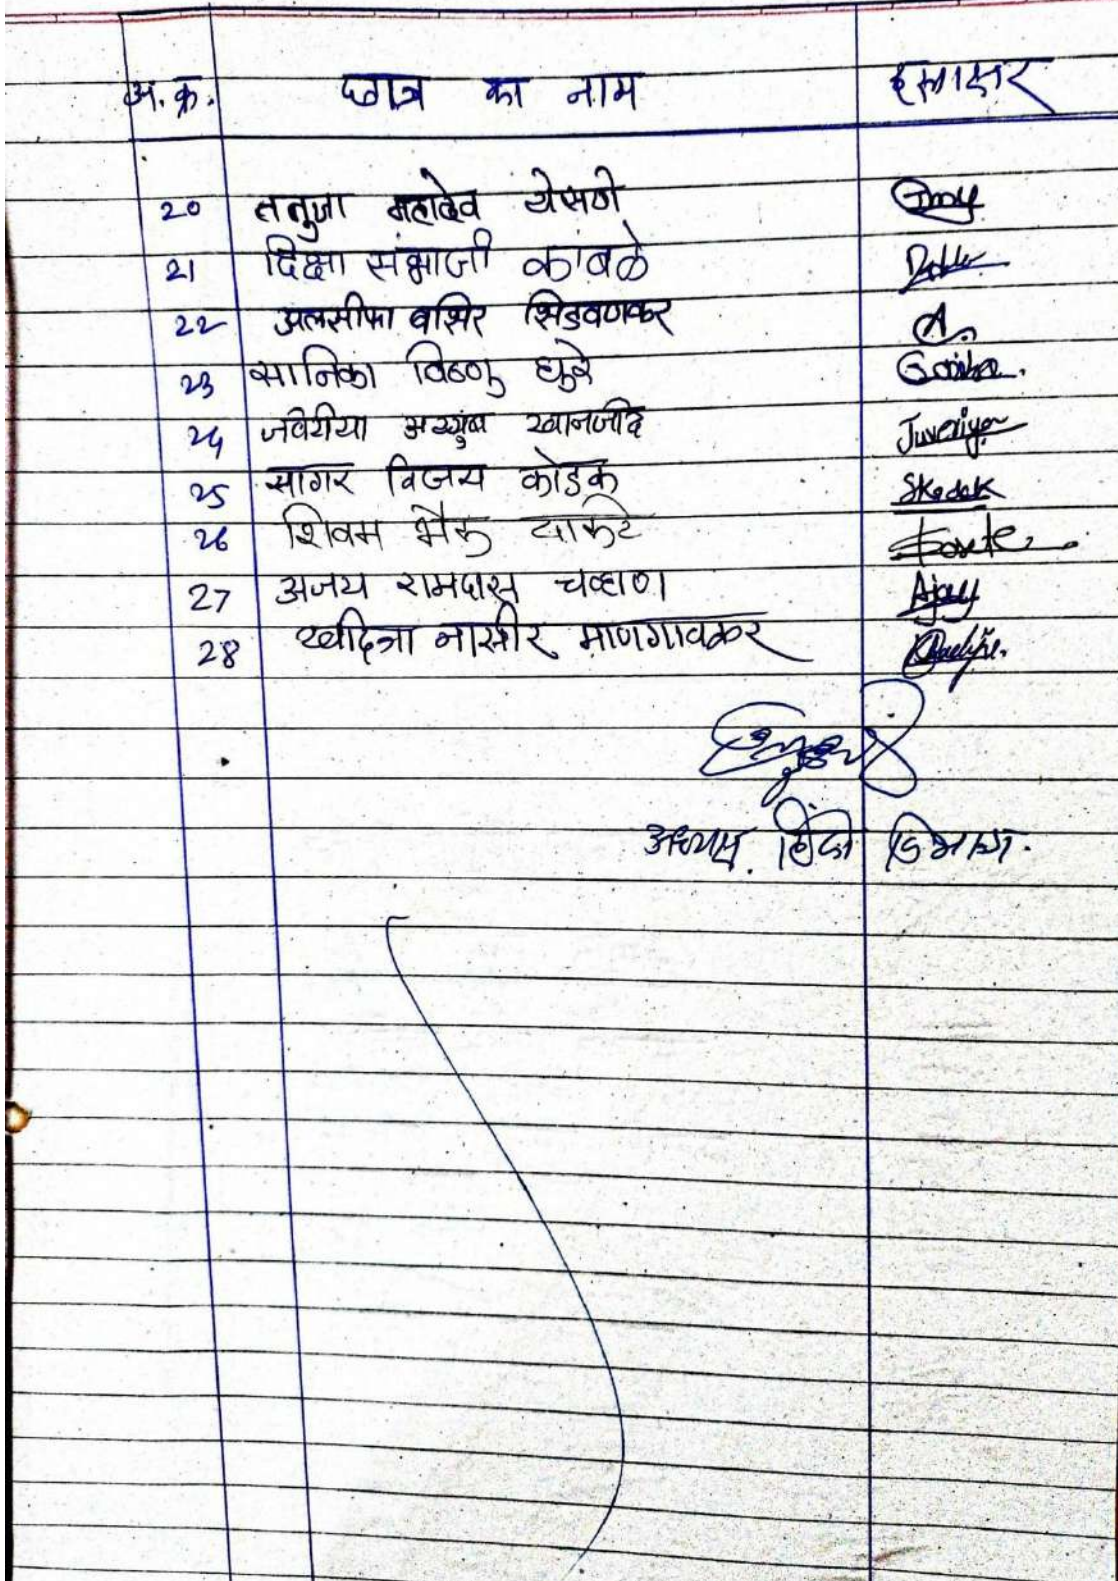 अ. क्र. छात्र का नाम हस्ताक्षर
20 तनुजा महादेव येसणे
21 दिक्षा संभाजी कांबळे
22 अलसीफा बशिर शिडवणकर A.
23 सानिका विष्णु धुरे
24 जवेरीया अय्युब खानजीदे Juveriya
25 सागर विजय कोडक SKodak
26 शिवम भैरू
27 अजय रामदास चव्हाण Ajay
28 नासीर माणगावकर
अध्यक्ष हिंदी विभाग.